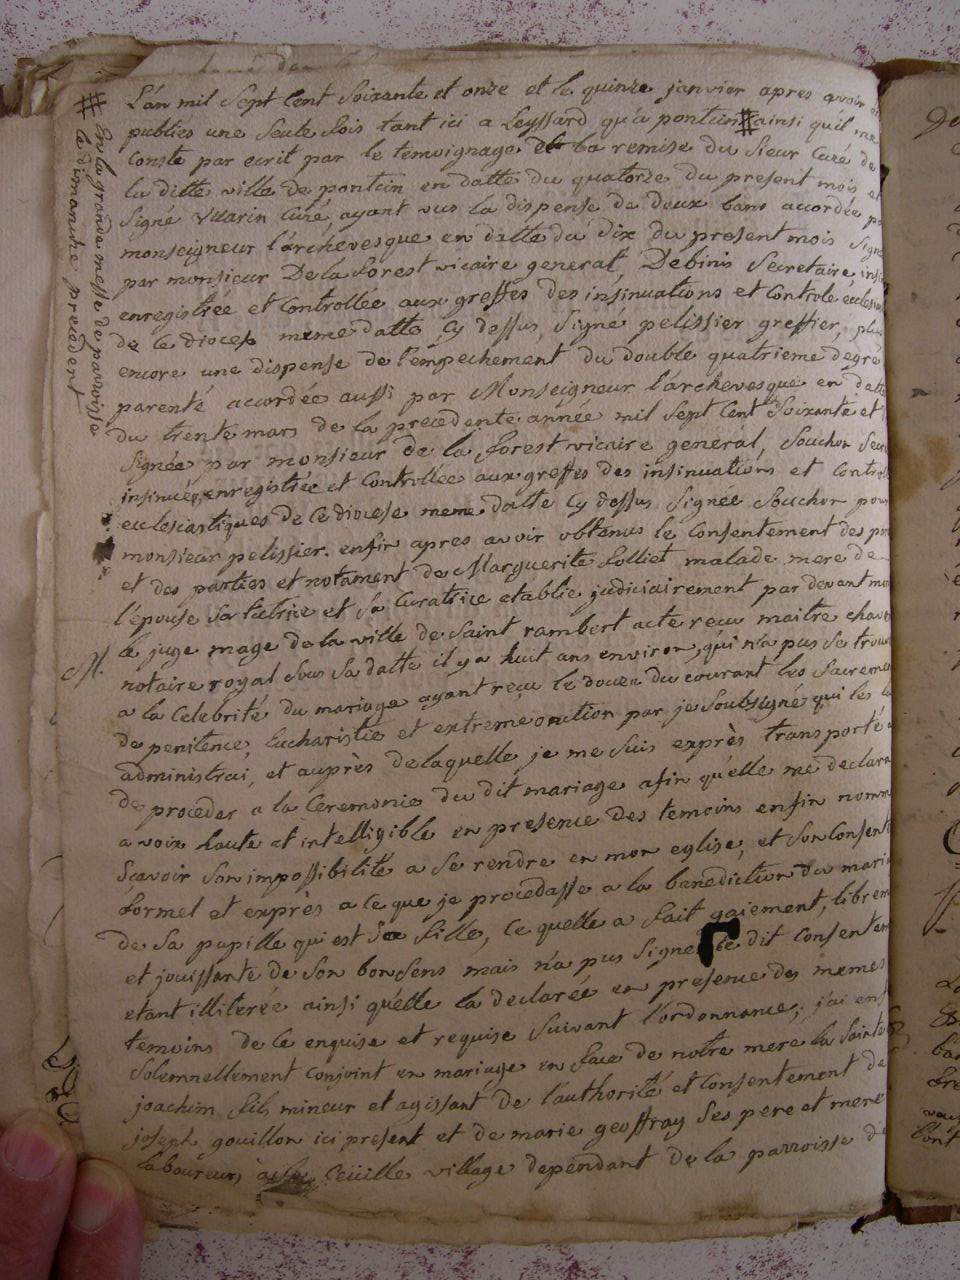 L'an mil sept cent soixante et onze et le quinze janvier apres avoir
publiés une seule fois tant ici a Leyssard qu'a pontcin # ainsi quil me
conste par ecrit par le temoignage et la remise du Sieur Curé de
la ditte ville de pontcin en datte du quatorze du present mois et
signé Vuarin curé, ayant vus la dispense de deux bans accordée
monseigneur l'archevesque en datte du dix du present mois signé
par monsieur De la forest vicaire general, Debinis Secretaire, insi
enregistrée et controllée aux greffes des insinuations et controle
de ce diocese meme datte cy dessus, signé pelissier greffier, plus
encore une dispense de l'empechement du double quatrieme degré
parenté accordée aussi par Monseigneur l'archevesque en datte
du trente mars de la precedente année mil sept cent soixante et
signée par monsieur de la forest vicaire general, Souchon
insinuée, enregistrée et controllée aux greffes des insinuations et control
ecclesiastiques de ce diocese meme datte cy dessus signée Souchon pour
monsieur pelissier. enfin apres avoir obtenus le consentement des
et des parties et notament de Marguerite Folliet malade mere de
l'epouse sa tutrice et sa curatrice etablie judiciairement par devant
le juge mage de la ville de saint rambert acte recu maitre
notaire royal sous sa datte il y a huit ans environ, qui n'a pas se trouv
a la celebrité du mariage ayant reçu le douze du courant les sacreme
de penitence, Eucharistie et extreme onction par je soubsigné qui les
administrai, et auprès de laquelle je me suis exprès transporté
de proceder a la ceremonie du dit mariage afin qu'elle me declara
a voix haute et intelligible en presence des temoins enfin nomm
sçavoir son impossibilité a se rendre en mon eglise, et son consent
formel et exprès a ce que je procedasse a la benediction du maria
de sa pupille qui est sa fille, ce quelle a fait gaiement, librem
et jouissante de son bon sens mais n'a pus signer le dit consentem
etant illiterée ainsi qu'elle la declarée en presence des memes
temoins de ce enquise et requise suivant l'ordonnance; j'ai enf
solemnellement conjoint en mariage en face de notre mere la sainte
joachim fils mineur et agissant de l'authorité et consentement de
joseph gouillon ici present et de marie geoffray ses pere et mere
laboureurs ceüille village dependant de la parroisse de
# En la grande messe de parroisse
le dimanche precedent